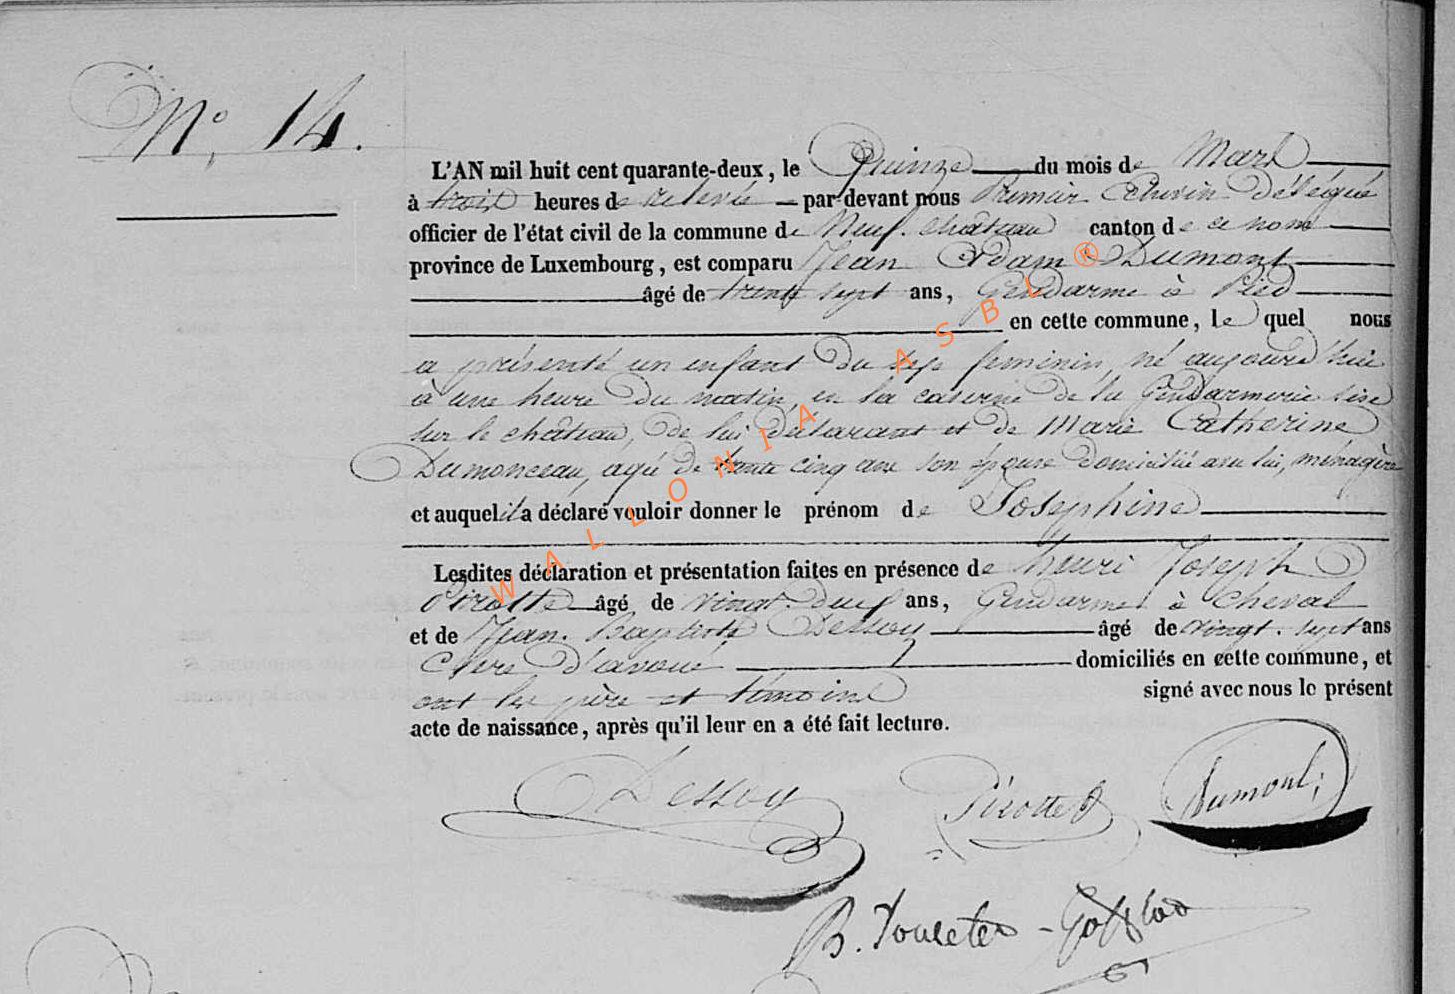 N° 14.
L'AN mil huit cent quarante-deux, le Quinze du mois de Mars
à trois heures de relevée par-devant nous Premier Echevin Délégué
officier de l'état civil de la commune de Neuf-château canton de ce nom
province de Luxembourg, est comparu Jean Adam Dumont
âgé de trente sept ans, Gendarme à Pied
en cette commune, le quel nous
a présenté un enfant du sexe feminin, né aujourd'hui
à une heure du matin, en la caserne de la Gendarmerie sise
sur le château, de lui déclarant et de Marie Catherine
Dumonceau, agée de trente cinq ans son épouse domiciliée avec lui, ménagère
et auquel il a déclaré vouloir donner le prénom de Josephine
Lesdites déclaration et présentation faites en présence de henri Joseph
Pirotte âgé de vingt-neuf ans, Gendarme à cheval
et de Jean-Baptiste Dessoy âgé de vingt-sept ans
Clerc d'avoué domiciliés en cette commune, et
ont les père et témoins signé avec nous le présent
acte de naissance, après qu'il leur en a été fait lecture.
Dessoy Pirotte Dumont
WALLONIA ASBL ®